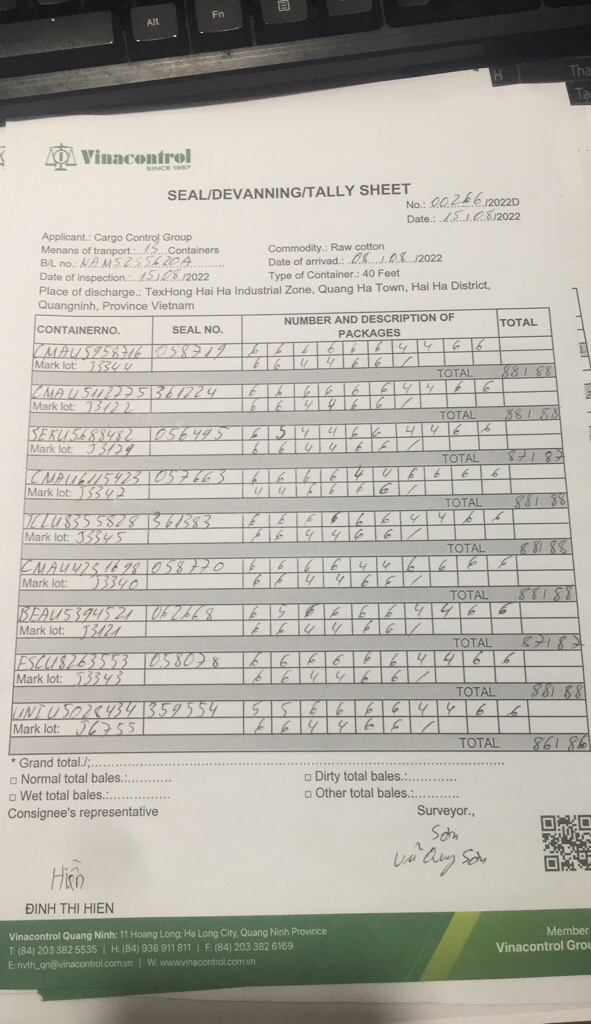 Alt
Fn
H
Tha
Ta
Vinacontrol
SINCE 1957
SEAL/DEVANNING/TALLY SHEET
No.: 00266 /2022D
Date.: 15 / 08 /2022
Applicant.: Cargo Control Group
Menans of tranport.: 15 Containers
Commodity.: Raw cotton
B/L no.: NAM5255620A
Date of arrivad.: 08 / 08 /2022
Date of inspection.: 15/08/2022
Type of Container.: 40 Feet
Place of discharge.: TexHong Hai Ha Industrial Zone, Quang Ha Town, Hai Ha District,
Quangninh, Province Vietnam
CONTAINERNO. SEAL NO. NUMBER AND DESCRIPTION OF PACKAGES TOTAL
CMAU5958716 058719 6 6 6 6 6 6 4 4 6 6
Mark lot: J3344 6 6 4 4 6 6 /
TOTAL 88/ 88
CMAU5112775 361224 6 6 6 6 6 6 4 4 6 6
Mark lot: J3122 6 6 4 4 6 6 /
TOTAL 88/ 88
SEKU5688482 056495 6 5 4 4 6 6 4 4 6 6
Mark lot: J3129 6 6 4 4 6 6 /
TOTAL 87/ 87
CMAU6115423 057663 6 6 6 6 4 4 6 6 6 6
Mark lot: J3342 4 4 6 6 6 6 /
TOTAL 88/ 88
TCLU8355828 361383 6 6 6 6 6 6 4 4 6 6
Mark lot: J3345 6 6 4 4 6 6 /
TOTAL 88/ 88
CMAU4231698 058770 6 6 6 6 4 4 6 6 6 6
Mark lot: J3340 6 6 4 4 6 6 /
TOTAL 88/ 88
BEAU5394521 062668 6 5 6 6 6 6 4 4 6 6
Mark lot: J3121 6 6 4 4 6 6 /
TOTAL 87/ 87
ESCU8263553 058078 6 6 6 6 6 6 4 4 6 6
Mark lot: J3343 6 6 4 4 6 6 /
TOTAL 88/ 88
UNIU5028434 359554 5 5 6 6 6 6 4 4 6 6
Mark lot: J6755 6 6 4 4 6 6 /
TOTAL 86/ 86
* Grand total./;
□ Normal total bales.:
□ Dirty total bales.:
□ Wet total bales.:
□ Other total bales.:
Consignee's representative
Surveyor.,
Sơn
Vũ Quy Sơn
Hiền
ĐINH THI HIEN
Vinacontrol Quang Ninh: 11 Hoang Long, Ha Long City, Quang Ninh Province
T: (84) 203 382 5535 | H: (84) 936 911 811 | F: (84) 203 382 6169
E: nvth_qn@vinacontrol.com.vn | W: www.vinacontrol.com.vn
Member
Vinacontrol Grou